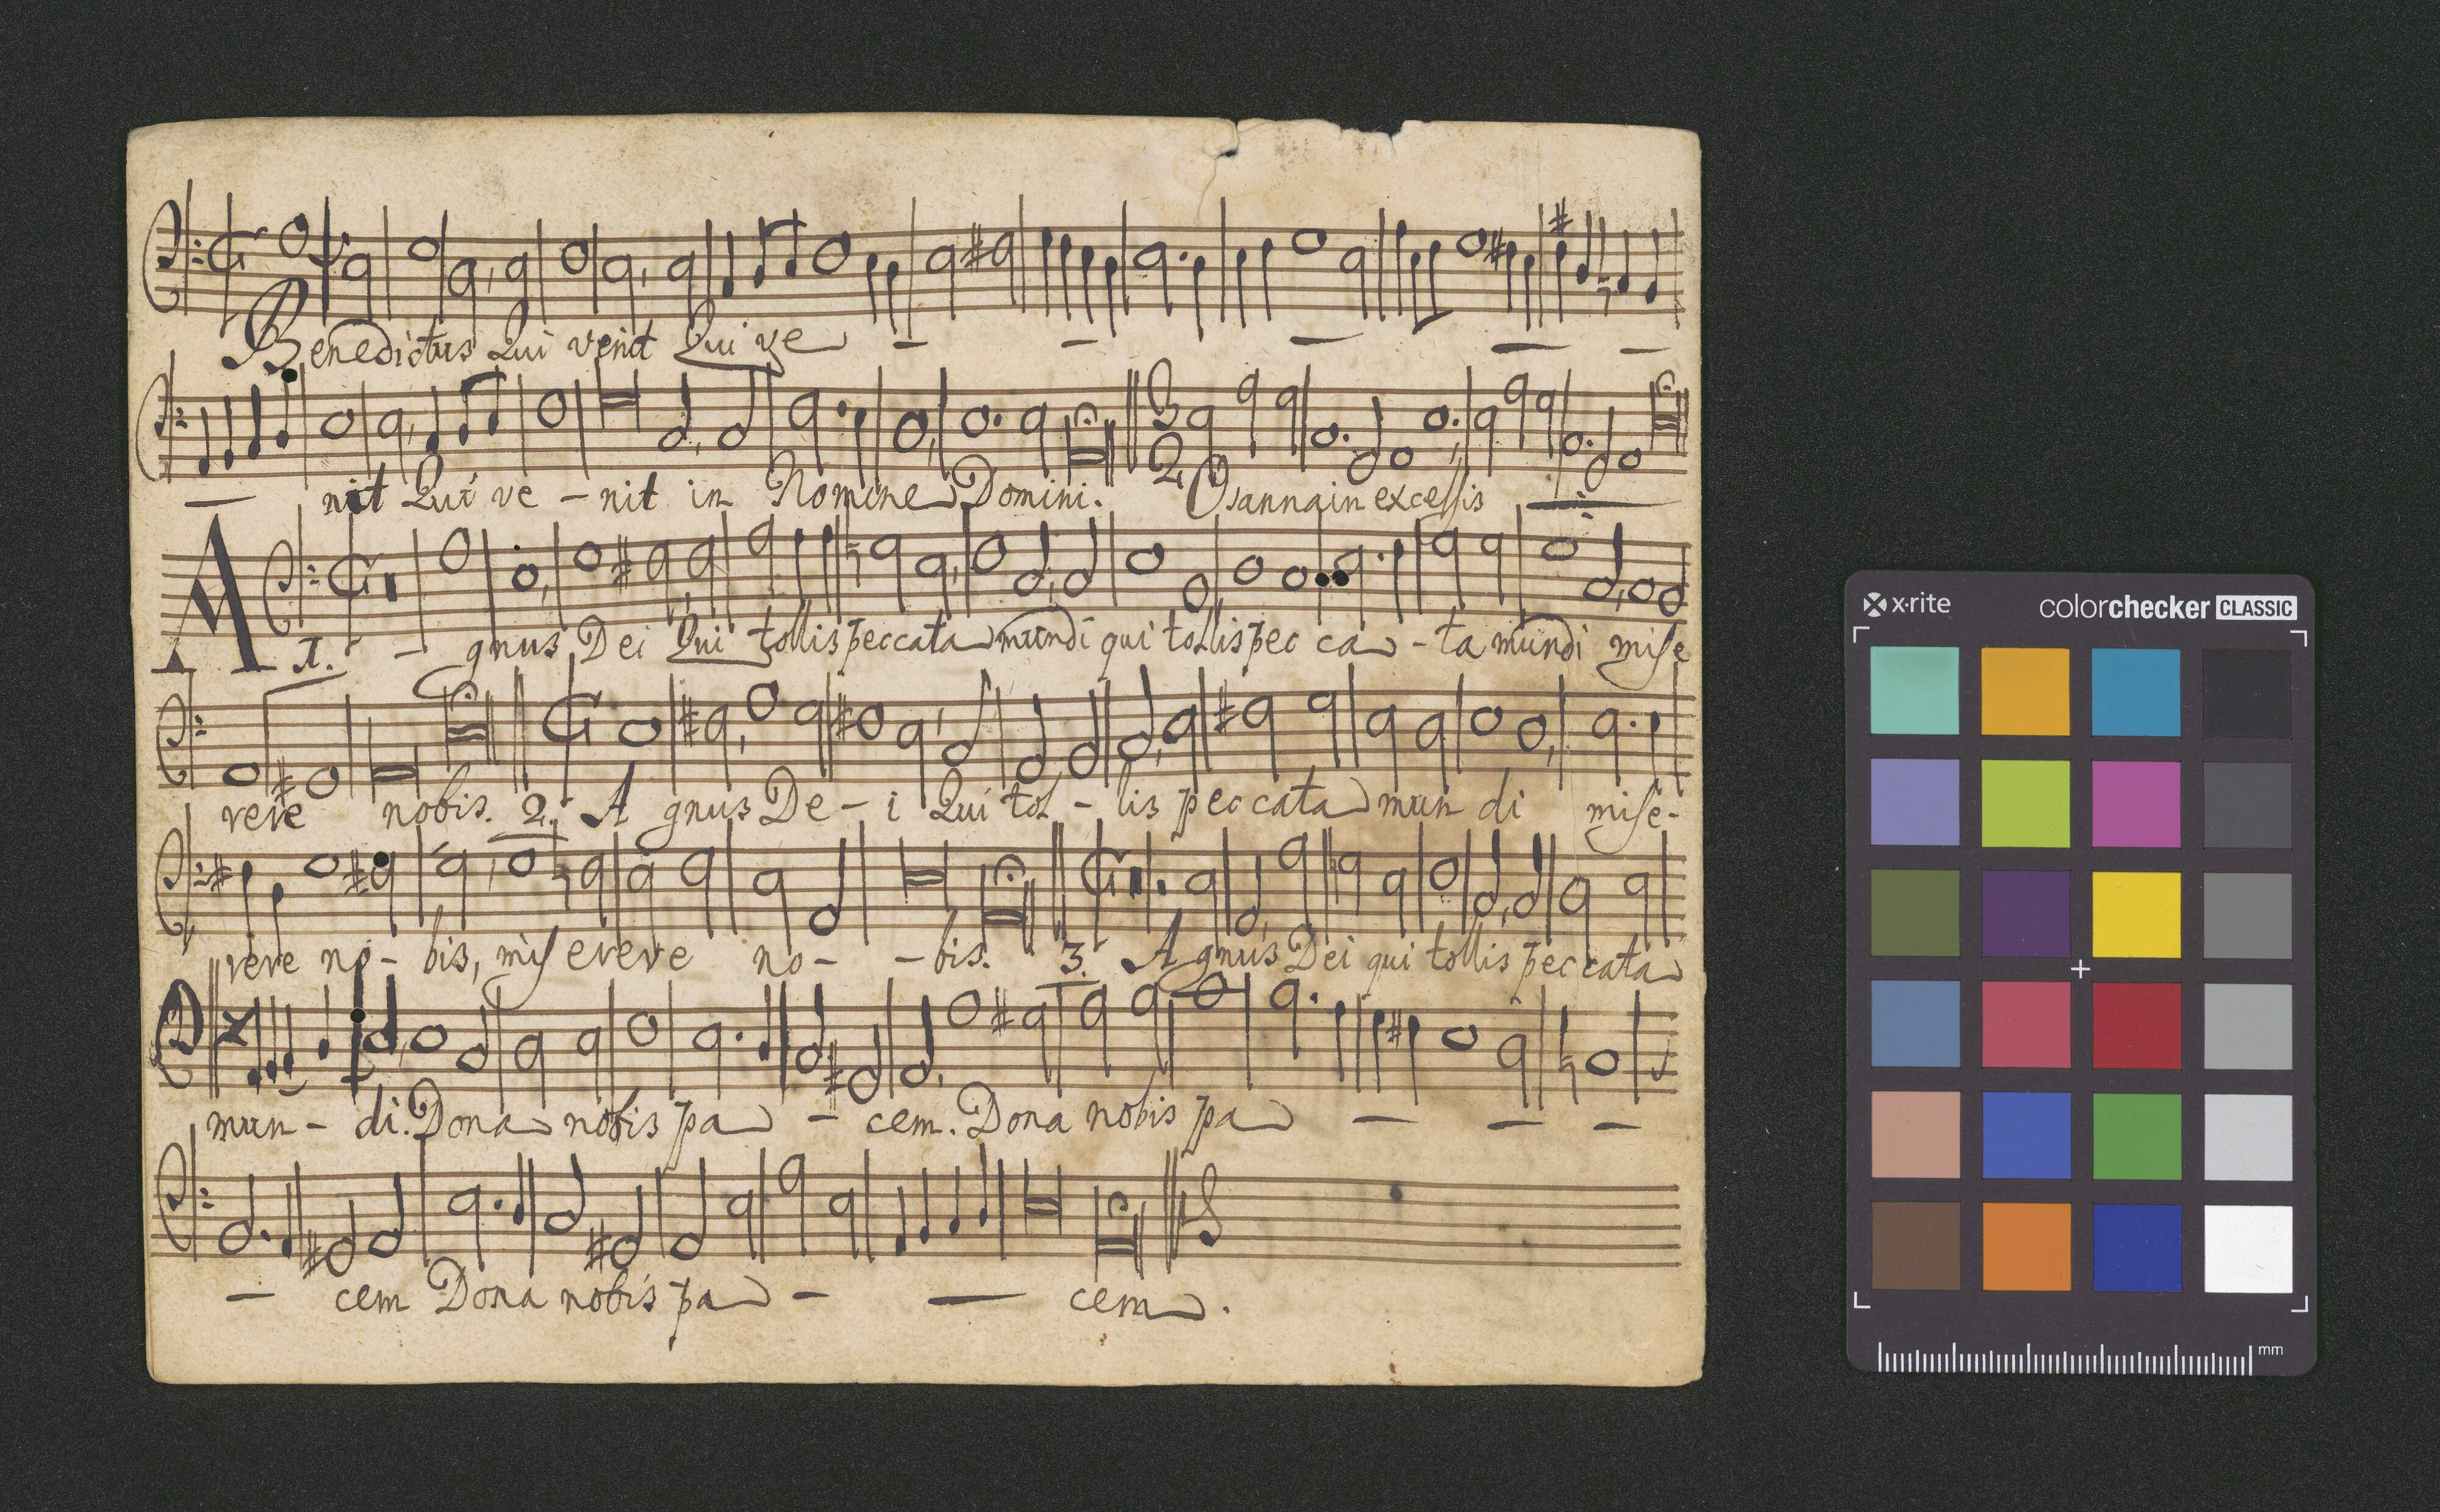 Benedictus Qui venit Qui ve - - - - -
- nit Qui ve - nit in Nomine Domini. Osanna in excelsis
A 1. - gnus Dei Qui tollis peccata mundi qui tollis pec ca - ta mundi mise
rere nobis. 2. A gnus De - i Qui tol - lis peccata mun di mise-
rere no - bis, miserere no - - bis. 3. A gnus Dei qui tollis peccata
mun - di. Dona nobis pa - cem. Dona nobis pa - - -
- cem Dona nobis pa - - cem.
x·rite colorchecker CLASSIC
mm